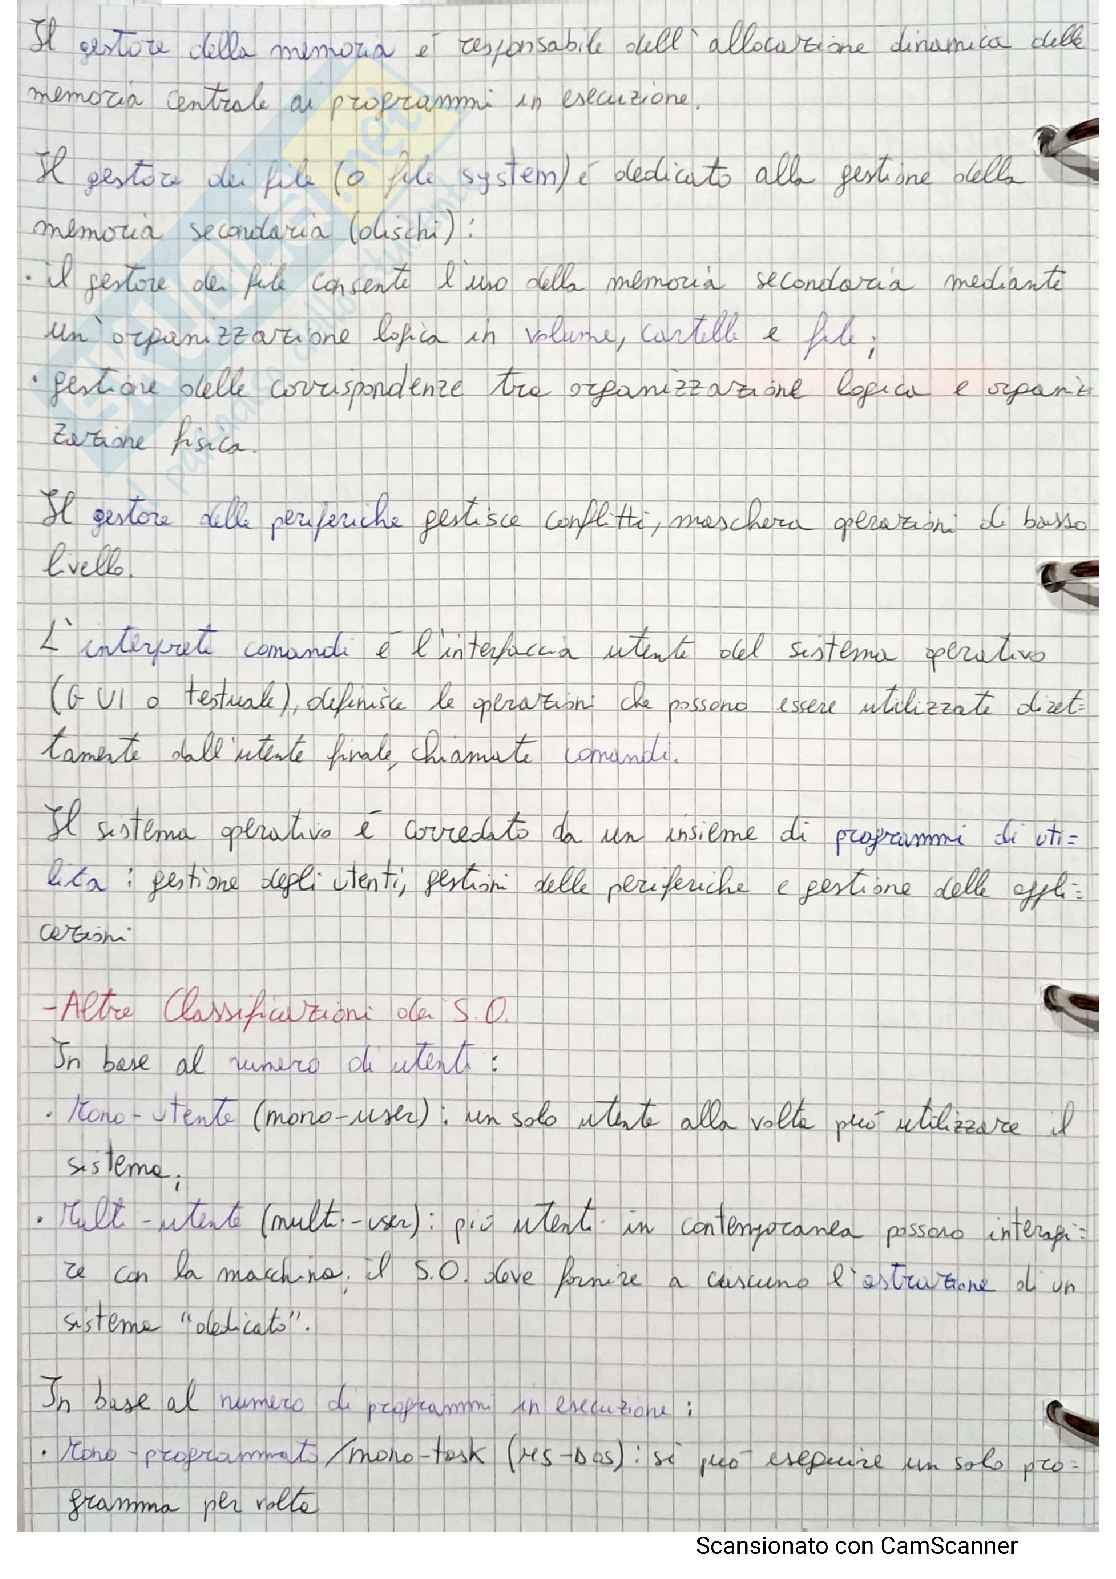 Il gestore della memoria é responsabile dell'allocazione dinamica della
memoria centrale ai programmi in esecuzione.
Il gestore dei file (o file system) é dedicato alla gestione della
memoria secondaria (dischi):
• il gestore dei file consente l'uso della memoria secondaria mediante
un'organizzazione logica in volume, cartelle e file;
• gestione delle corrispondenze tra organizzazione logica e organiz
zazione fisica.
Il gestore delle periferiche gestisce conflitti, maschera operazioni di basso
livello.
L'interprete comandi é l'interfaccia utente del sistema operativo
(GUI o testuale), definisce le operazioni che possono essere utilizzate diret=
tamente dall'utente finale, chiamate comandi.
Il sistema operativo é corredato da un insieme di programmi di uti=
lità: gestione degli utenti, gestioni delle periferiche e gestione delle appli=
cazioni
-Altre Classificazioni dei S.O.
In base al numero di utenti:
• Mono-utente (mono-user): un solo utente alla volta può utilizzare il
sistema;
• Multi-utente (multi-user): più utenti in contemporanea possono interagi=
re con la macchina; il S.O. deve fornire a ciascuno l'astrazione di un
sistema "dedicato".
In base al numero di programmi in esecuzione:
• Mono-programmato/mono-task (MS-DOS): si può eseguire un solo pro=
gramma per volta
Scansionato con CamScanner